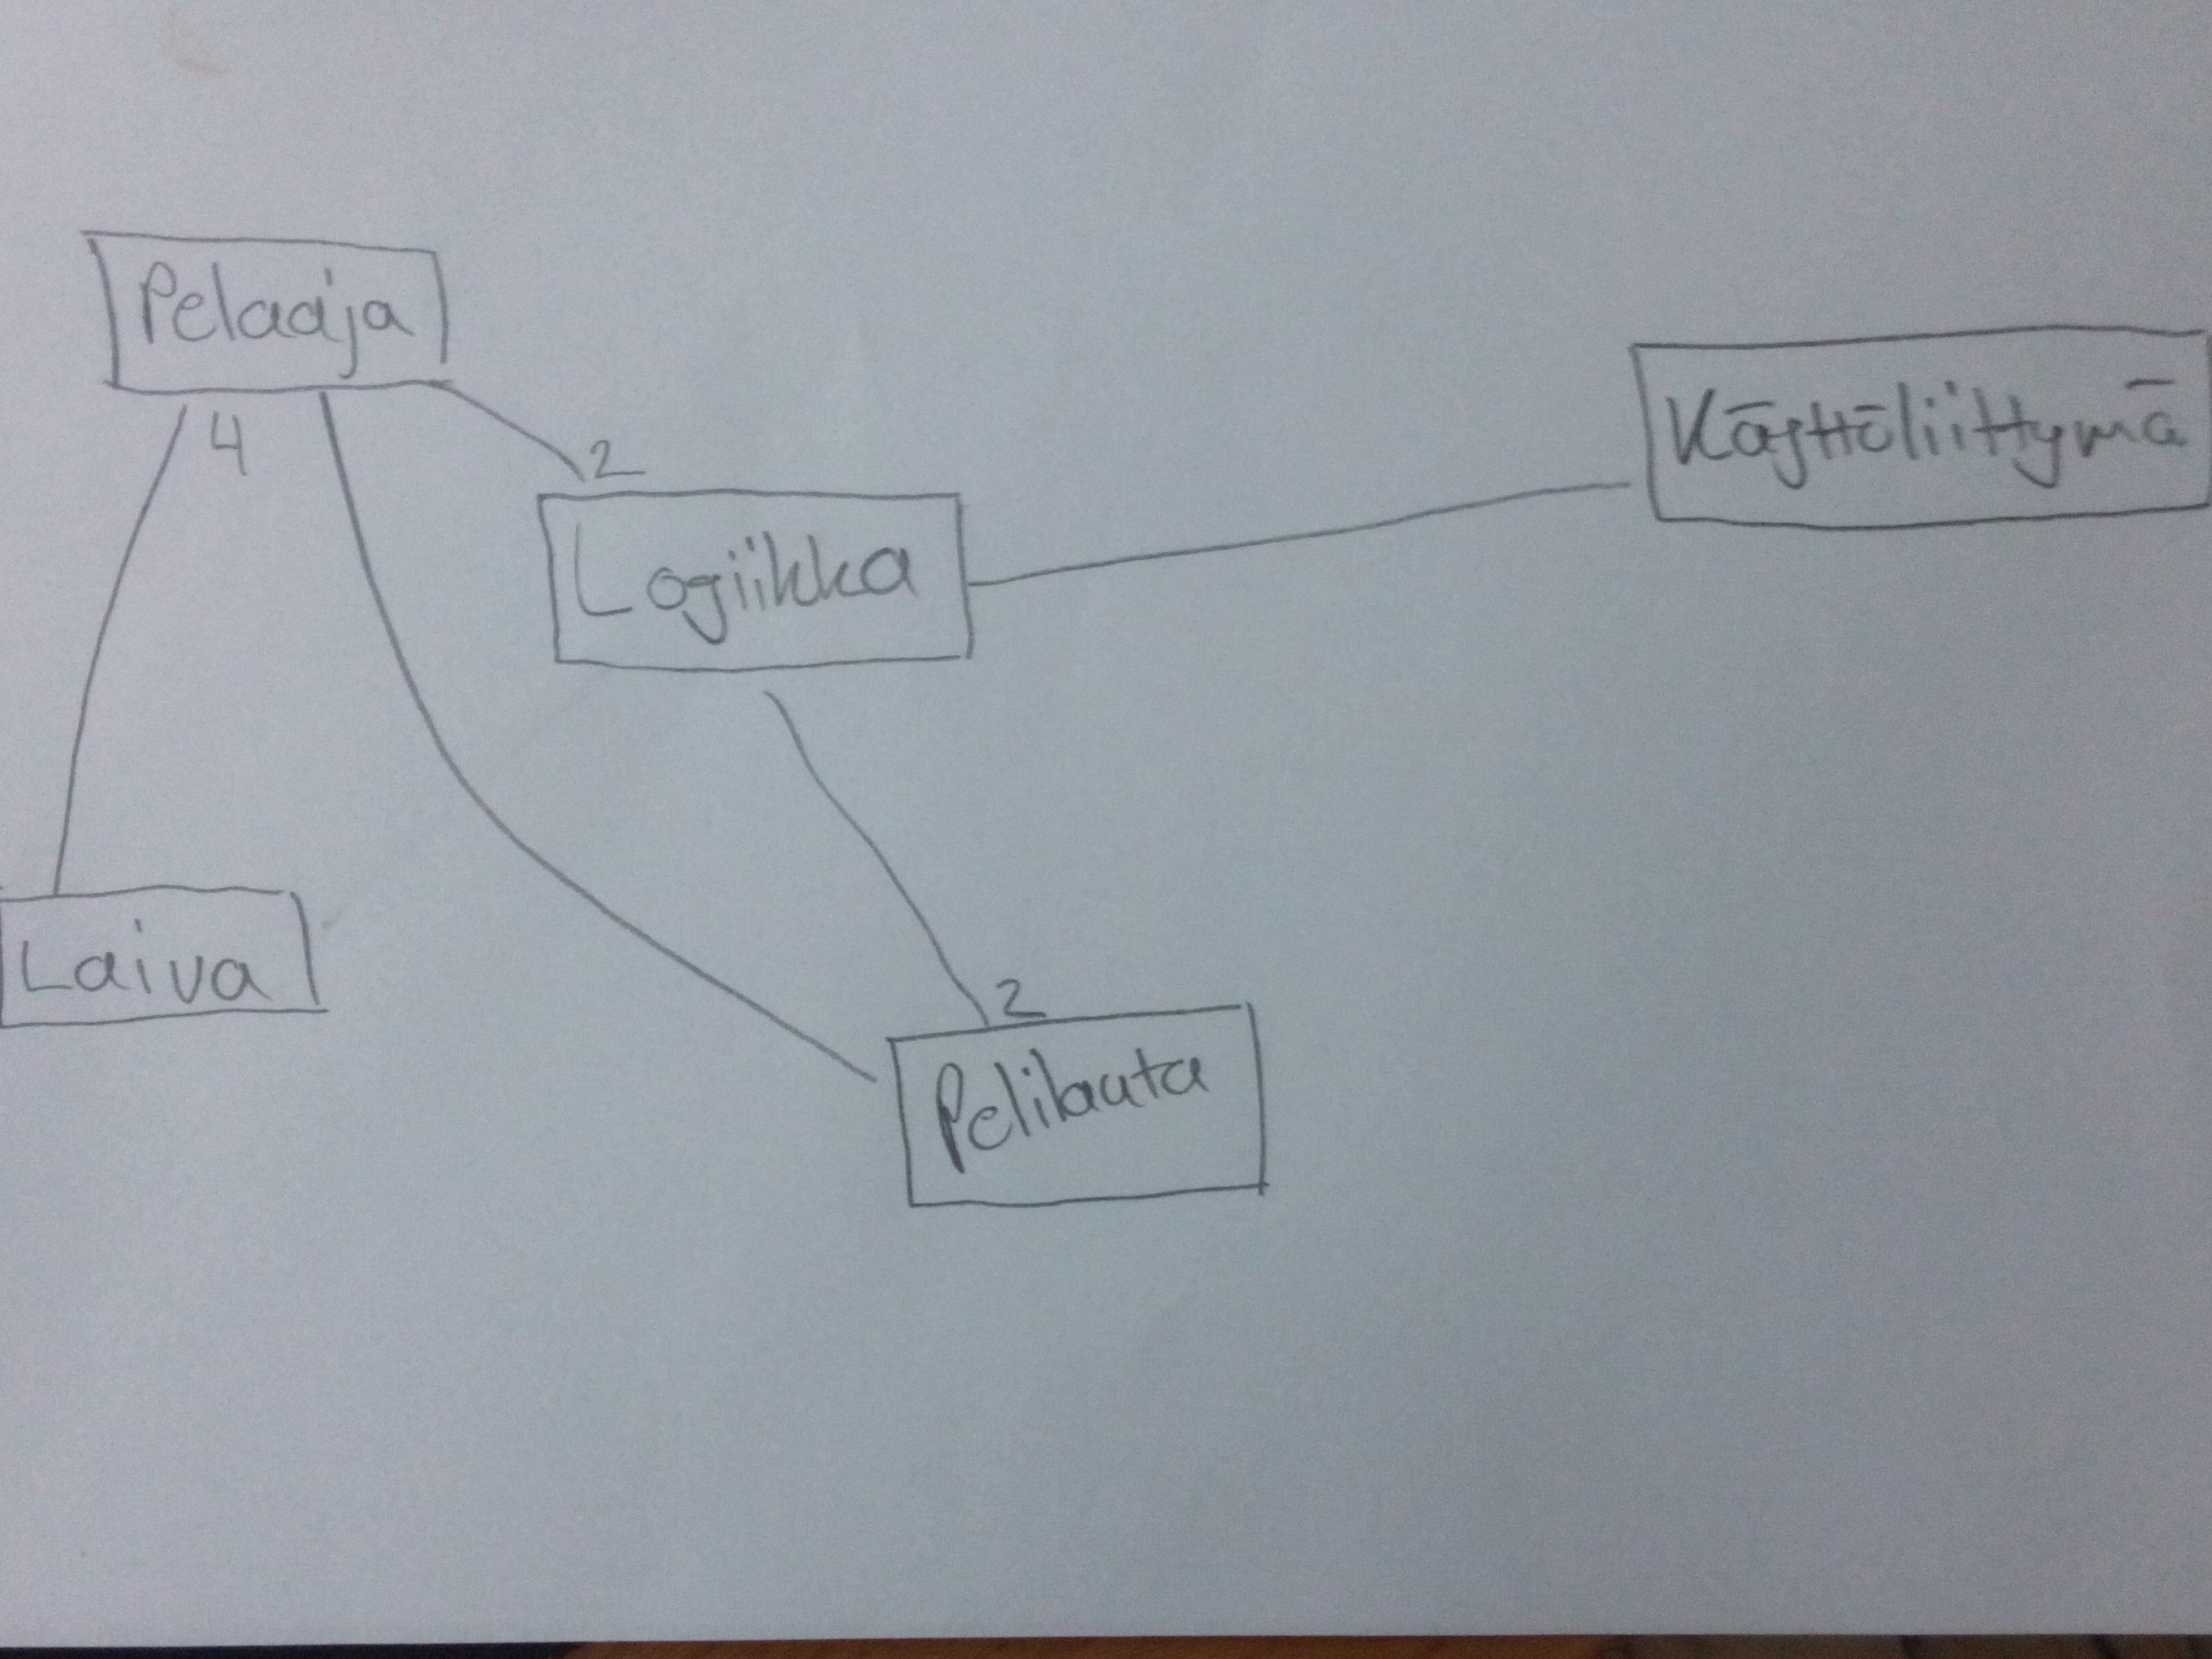 Pelaaja
4
2
Logiikka
Käyttöliittymä
Laiva
2
Pelilauta